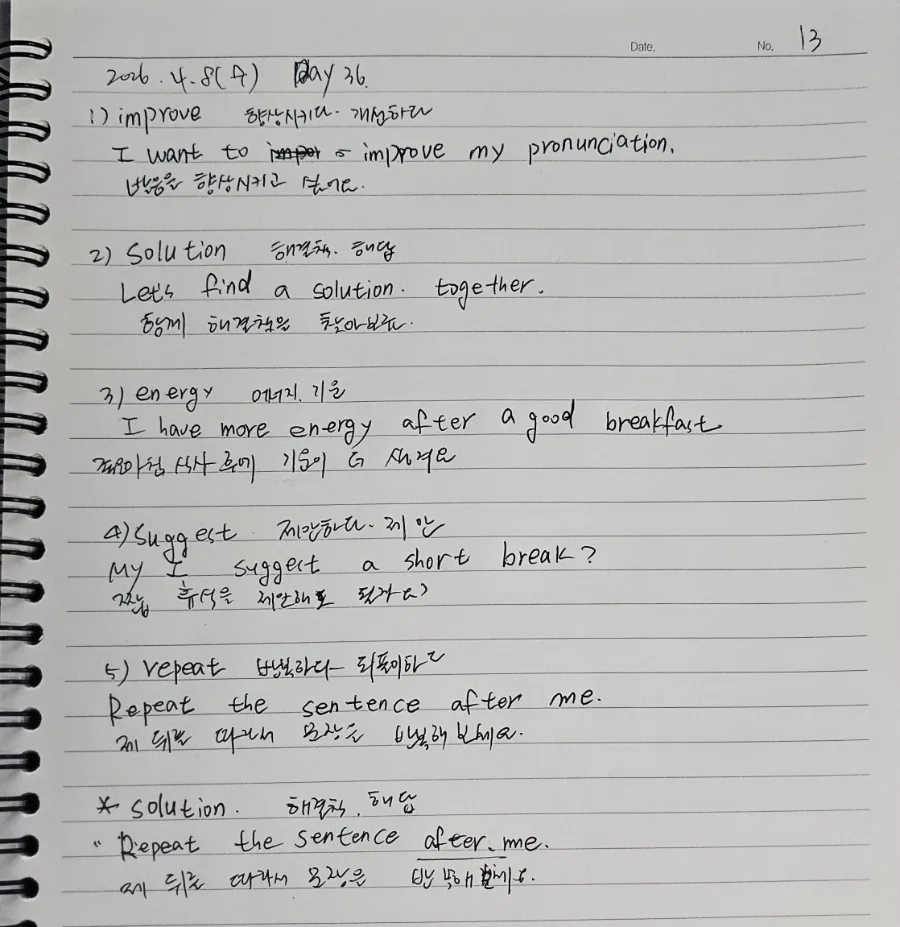 Date. No. 13
2026.4.8(수) Day 36.
1) improve 향상시키다. 개선하다
I want to improve my pronunciation.
발음을 향상시키고 싶어요.
2) Solution 해결책. 해답
Let's find a solution. together.
함께 해결책을 찾아보죠.
3) energy 에너지. 기운
I have more energy after a good breakfast
아침 식사 후에 기운이 더 생겨요
4) Suggest. 제안하다. 제안
My I suggest a short break?
휴식을 제안해도 될까요?
5) repeat 반복하다 되풀이하다
Repeat the sentence after me.
제 뒤를 따라서 문장을 반복해보세요.
* solution. 해결책. 해답
" Repeat the sentence after. me.
제 뒤를 따라서 문장을 반복해보세요.